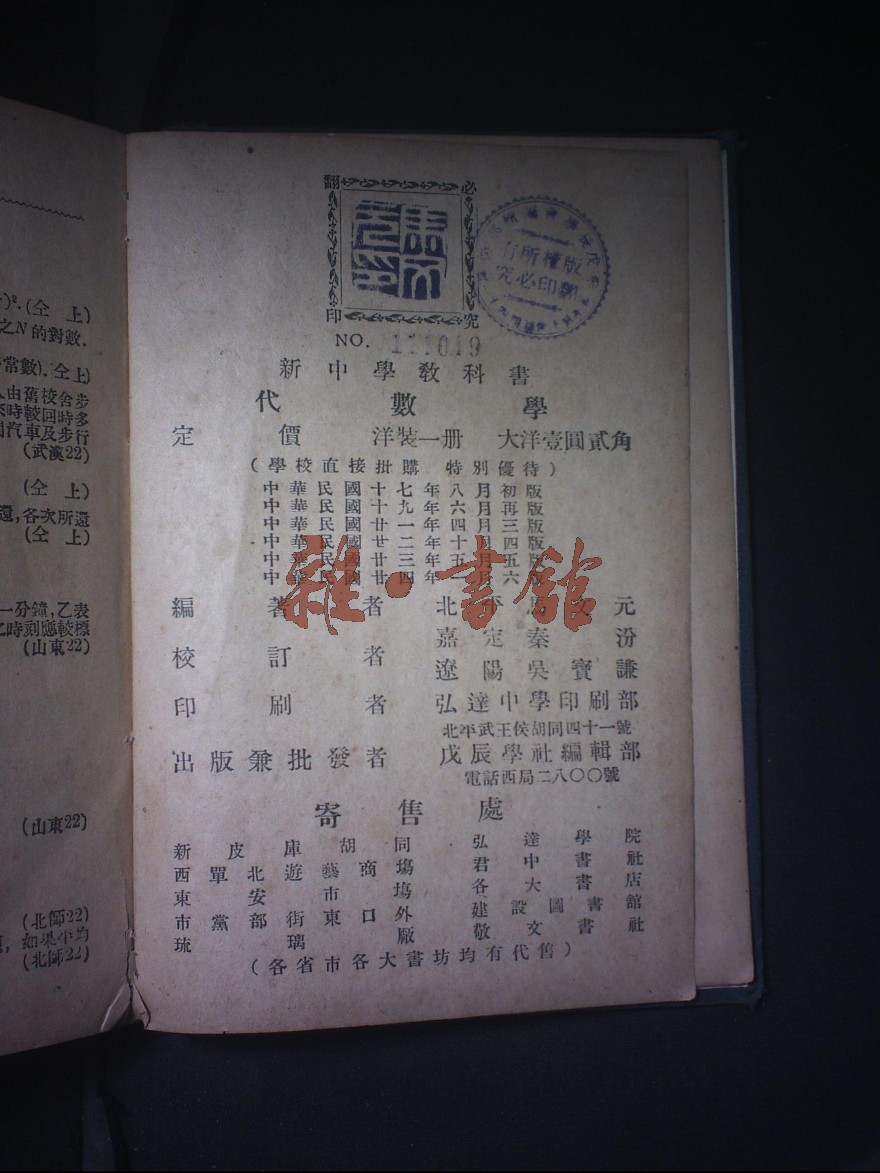 )².(仝 上)
之N 的對數.
常數).仝上)
人由舊校舍步
來時較回時多
汽車及步行
(武漢22)
(仝 上)
還,各次所還
(仝 上)
一分鐘,乙表
之時刻應較標
(山東22)
(山東22)
(北師22)
如果平均
(北師22)
翻 必
印 究
版權所有
翻印必究
NO. 111019
新中學教科書
代數學
定價 洋裝一册 大洋壹圓貳角
(學校直接批購 特別優待)
中華民國十七年八月初版
中華民國十九年六月再版
中華民國廿一年四月三版
中華民國廿二年十月四版
中華民國廿三年五月五版
中華民國廿四年一月六版
雜·書館
編著者 北平馬文元
嘉定秦汾
校訂者
遼陽吳寶謙
印刷者 弘達中學印刷部
北平武王侯胡同四十一號
出版兼批發者 戊辰學社編輯部
電話西局二八〇〇號
寄售處
新皮庫胡同 弘達學院
西單北遊藝商塲 君中書社
東安市塲 各大書店
市黨部街東口外 建設圖書館
琉璃廠 敬文書社
(各省市各大書坊均有代售)